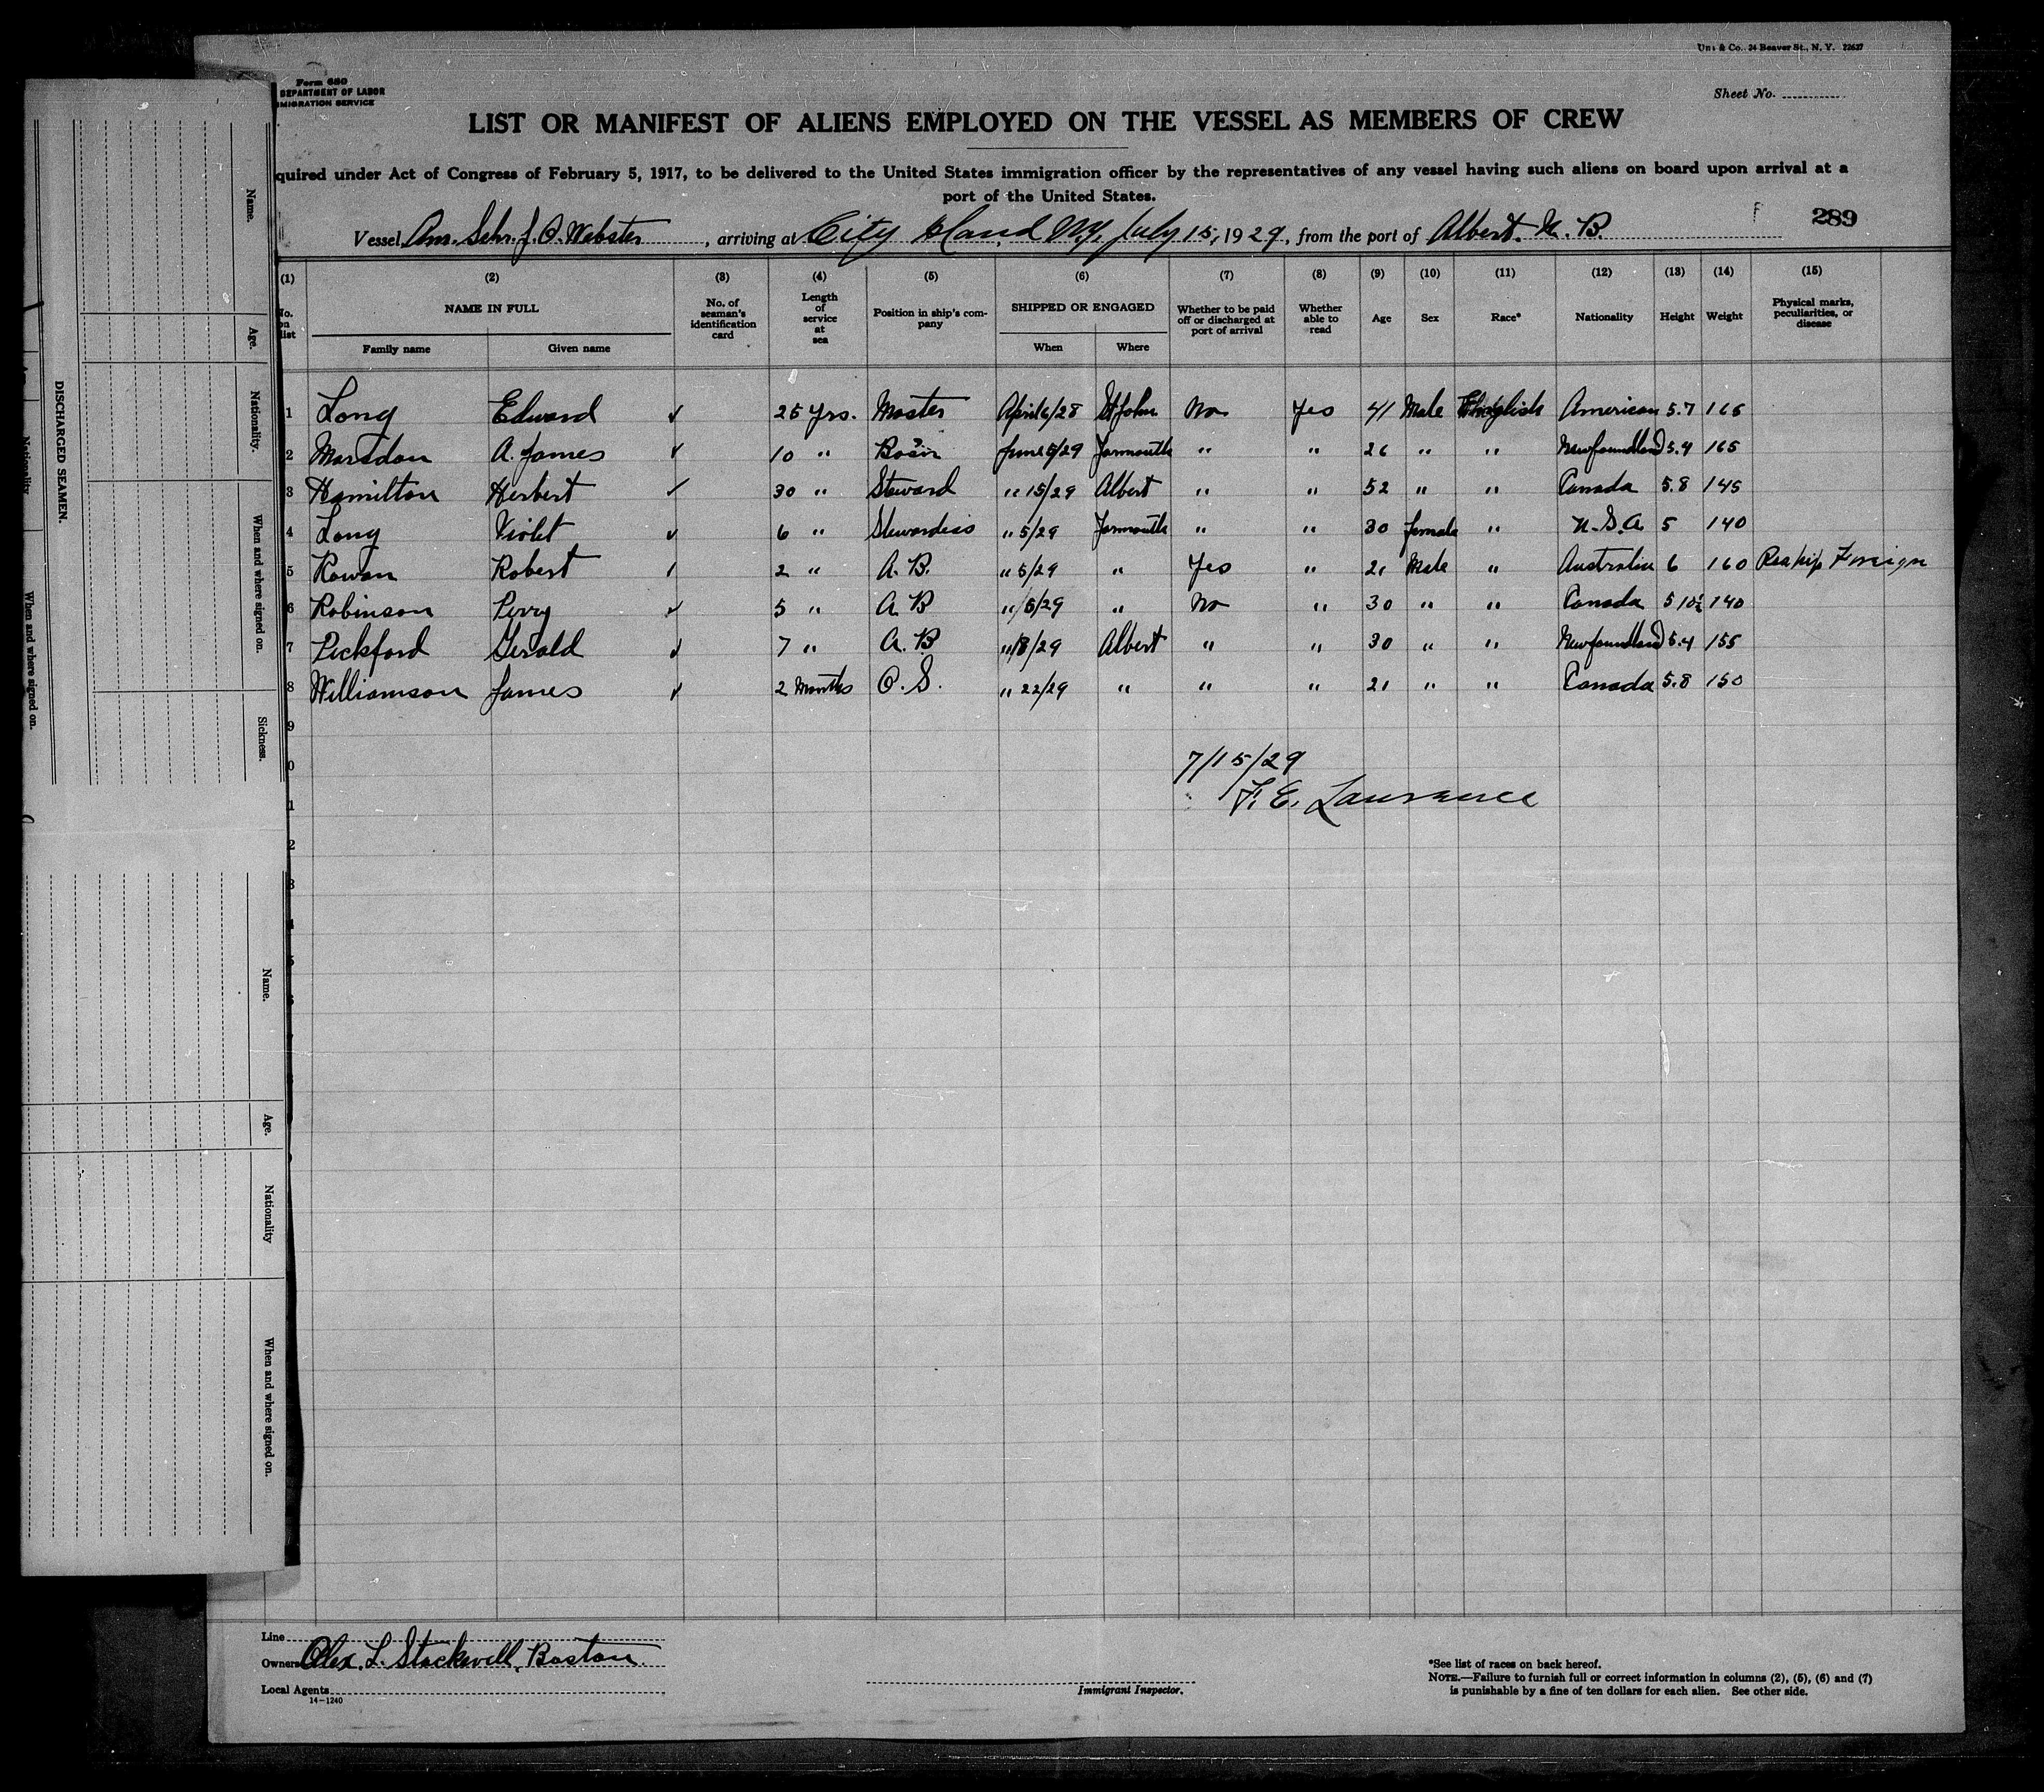 Form 680
DEPARTMENT OF LABOR
IMMIGRATION SERVICE
& Co., 24 Beaver St., N. Y. 22627
Sheet No.
LIST OR MANIFEST OF ALIENS EMPLOYED ON THE VESSEL AS MEMBERS OF CREW
quired under Act of Congress of February 5, 1917, to be delivered to the United States immigration officer by the representatives of any vessel having such aliens on board upon arrival at a
port of the United States.
Vessel Am. Schr. J. O. Webster, arriving at City Island N.Y., July 15, 1929, from the port of Albert. N. B. 289
(1) (2) (3) (4) (5) (6) (7) (8) (9) (10) (11) (12) (13) (14) (15)
No. on list NAME IN FULL Family name Given name No. of seaman's identification card Length of service at sea Position in ship's company SHIPPED OR ENGAGED When Where Whether to be paid off or discharged at port of arrival Whether able to read Age Sex Race* Nationality Height Weight Physical marks, peculiarities, or disease
1 Long Edward ✓ 25 yrs. Master April 6/28 St John No Yes 41 Male English American 5.7 165
2 Marsdon A. James ✓ 10 " Bosin June 5/29 Yarmouth " " 26 " " Newfoundland 5.4 165
3 Hamilton Herbert ✓ 30 " Steward " 15/29 Albert " " 52 " " Canada 5.8 145
4 Long Violet ✓ 6 " Stewardess " 5/29 Yarmouth " " 30 female " U.S.A. 5 140
5 Rowan Robert ✓ 2 " A. B. " 5/29 " Yes " 21 Male " Australia 6 160 Reship Foreign
6 Robinson Perry ✓ 5 " A B " 5/29 " No " 30 " " Canada 5 10½ 140
7 Peckford Gerald ✓ 7 " A. B " 18/29 Albert " " 30 " " Newfoundland 5.4 155
8 Williamson James ✓ 2 Months O. S. " 22/29 " " " 21 " " Canada 5.8 150
9
0
7/15/29
1
F. E. Lawrence
2
3
4
5
Name.
Age.
Nationality.
When and where signed on.
Sickness.
DISCHARGED SEAMEN.
Nationality
When and where signed on.
Name.
Age.
Nationality
When and where signed on.
Line
Owners Alex. L. Stockwell, Boston.
Local Agents
14-1240
Immigrant Inspector.
*See list of races on back hereof.
NOTE.—Failure to furnish full or correct information in columns (2), (5), (6) and (7)
is punishable by a fine of ten dollars for each alien. See other side.